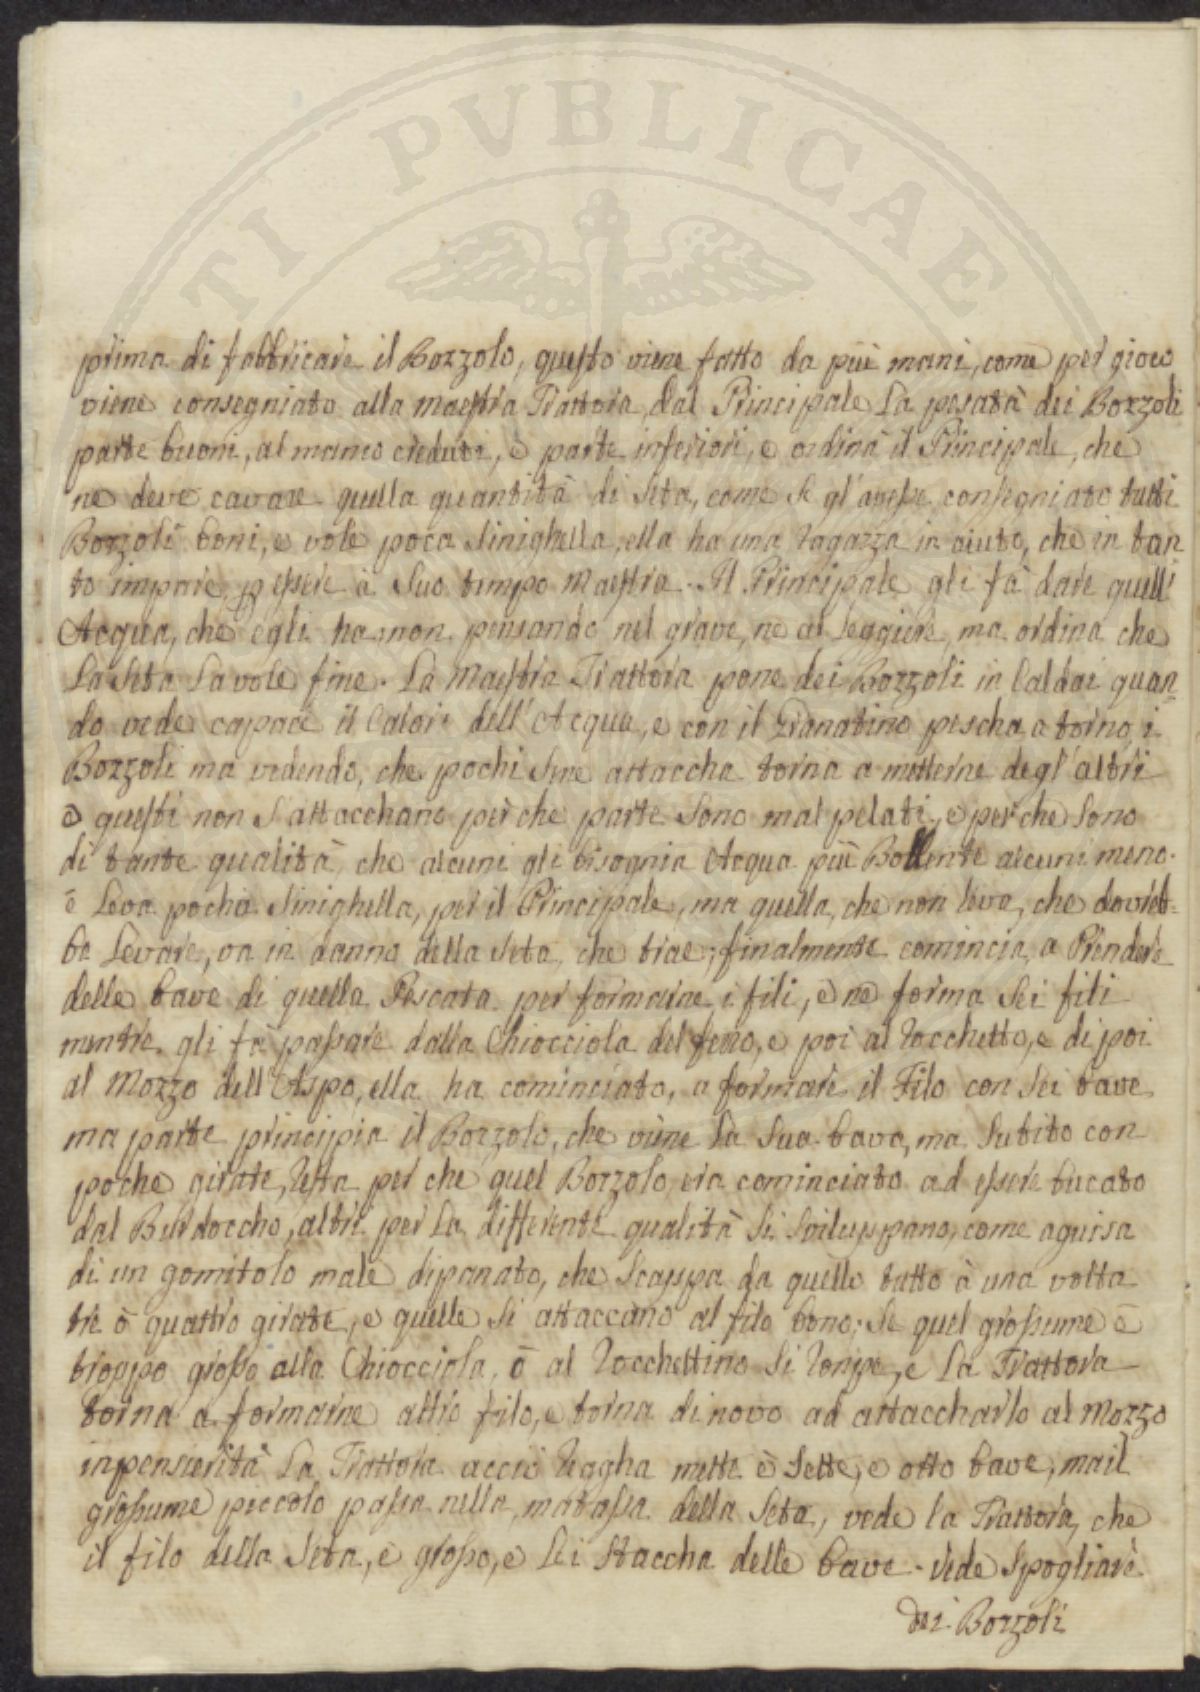 TI PVBLICAE
prima di fabbricare il Bozzolo, questo viene fatto da più mani, come per gioco
viene consegniato alla maestra Trattora, dal Principale La pesatà dei Bozzoli
parte buoni, al manco creduti, è parte inferiori, e ordinà il Principale, che
ne deve cavare quella quantità di Seta, come se gl'avesse consegniato tutti
Bozzoli boni, e vole poca Sinighella, ella ha una Ragazza in aiuto, che in tan
to impare, p essere à Suo tempo Maestra. Il Principale gli fà dare quell'
Acqua, che egli ha non pensando nel grave, ne al Leggiere, ma ordina che
La Seta La vole fine. La Maestra Trattora pone dei Bozzoli in Caldai quan
do vede capace il Calore dell'Acqua, e con il Granatino pescha a torno i
Bozzoli ma vedendo, che pochi Sene attaccha torna a metterne degl'altri
e questi non S'attacchano perche parte Sono mal pelati, e perche Sono
di tante qualità, che alcuni gli bisognia Acqua più Bollente alcuni meno.
è Leva pocha Sinighella, per il Principale, ma quella, che non leva, che dovreb=
be Levare, va in danno della Seta che trae; finalmente comincia a Prendere
delle bave di quella Pescata per formarne i fili, e ne forma Sei fili
mentre gli fà passare dalla Chiocciola del feno, e poi al Rocchetto, e di poi
al Mozzo dell'Aspo, ella ha cominciato, a formare il Filo con Sei bave
ma parte principia il Bozzolo, che viene La Sua bava, ma Subito con
poche girate, Resta per che quel Bozzolo era cominciato ad essere bucato
dal Burdoccho, altri per La differente qualità Si Sviluppano, come aguisa
di un gomitolo male dipanato, che Scappa da quello tutto à una volta
tre ò quattro girate, e quelle Si attaccano al filo bono; Se quel grossume è
troppo grosso alla Chiocciola, ò al Rocchettino Si Rompe, e La Trattora
torna a formarne altro filo, e torna di novo ad attaccharlo al Mozzo
inpensierità La Trattora acciò Regha mette è Sette, e otto bave, ma il
grossume piccolo passa nella matassa della Seta, vede la Trattora, che
il filo della Seta, è grosso, e Lei Staccha delle bave. vede Spogliare
dei Bozzoli